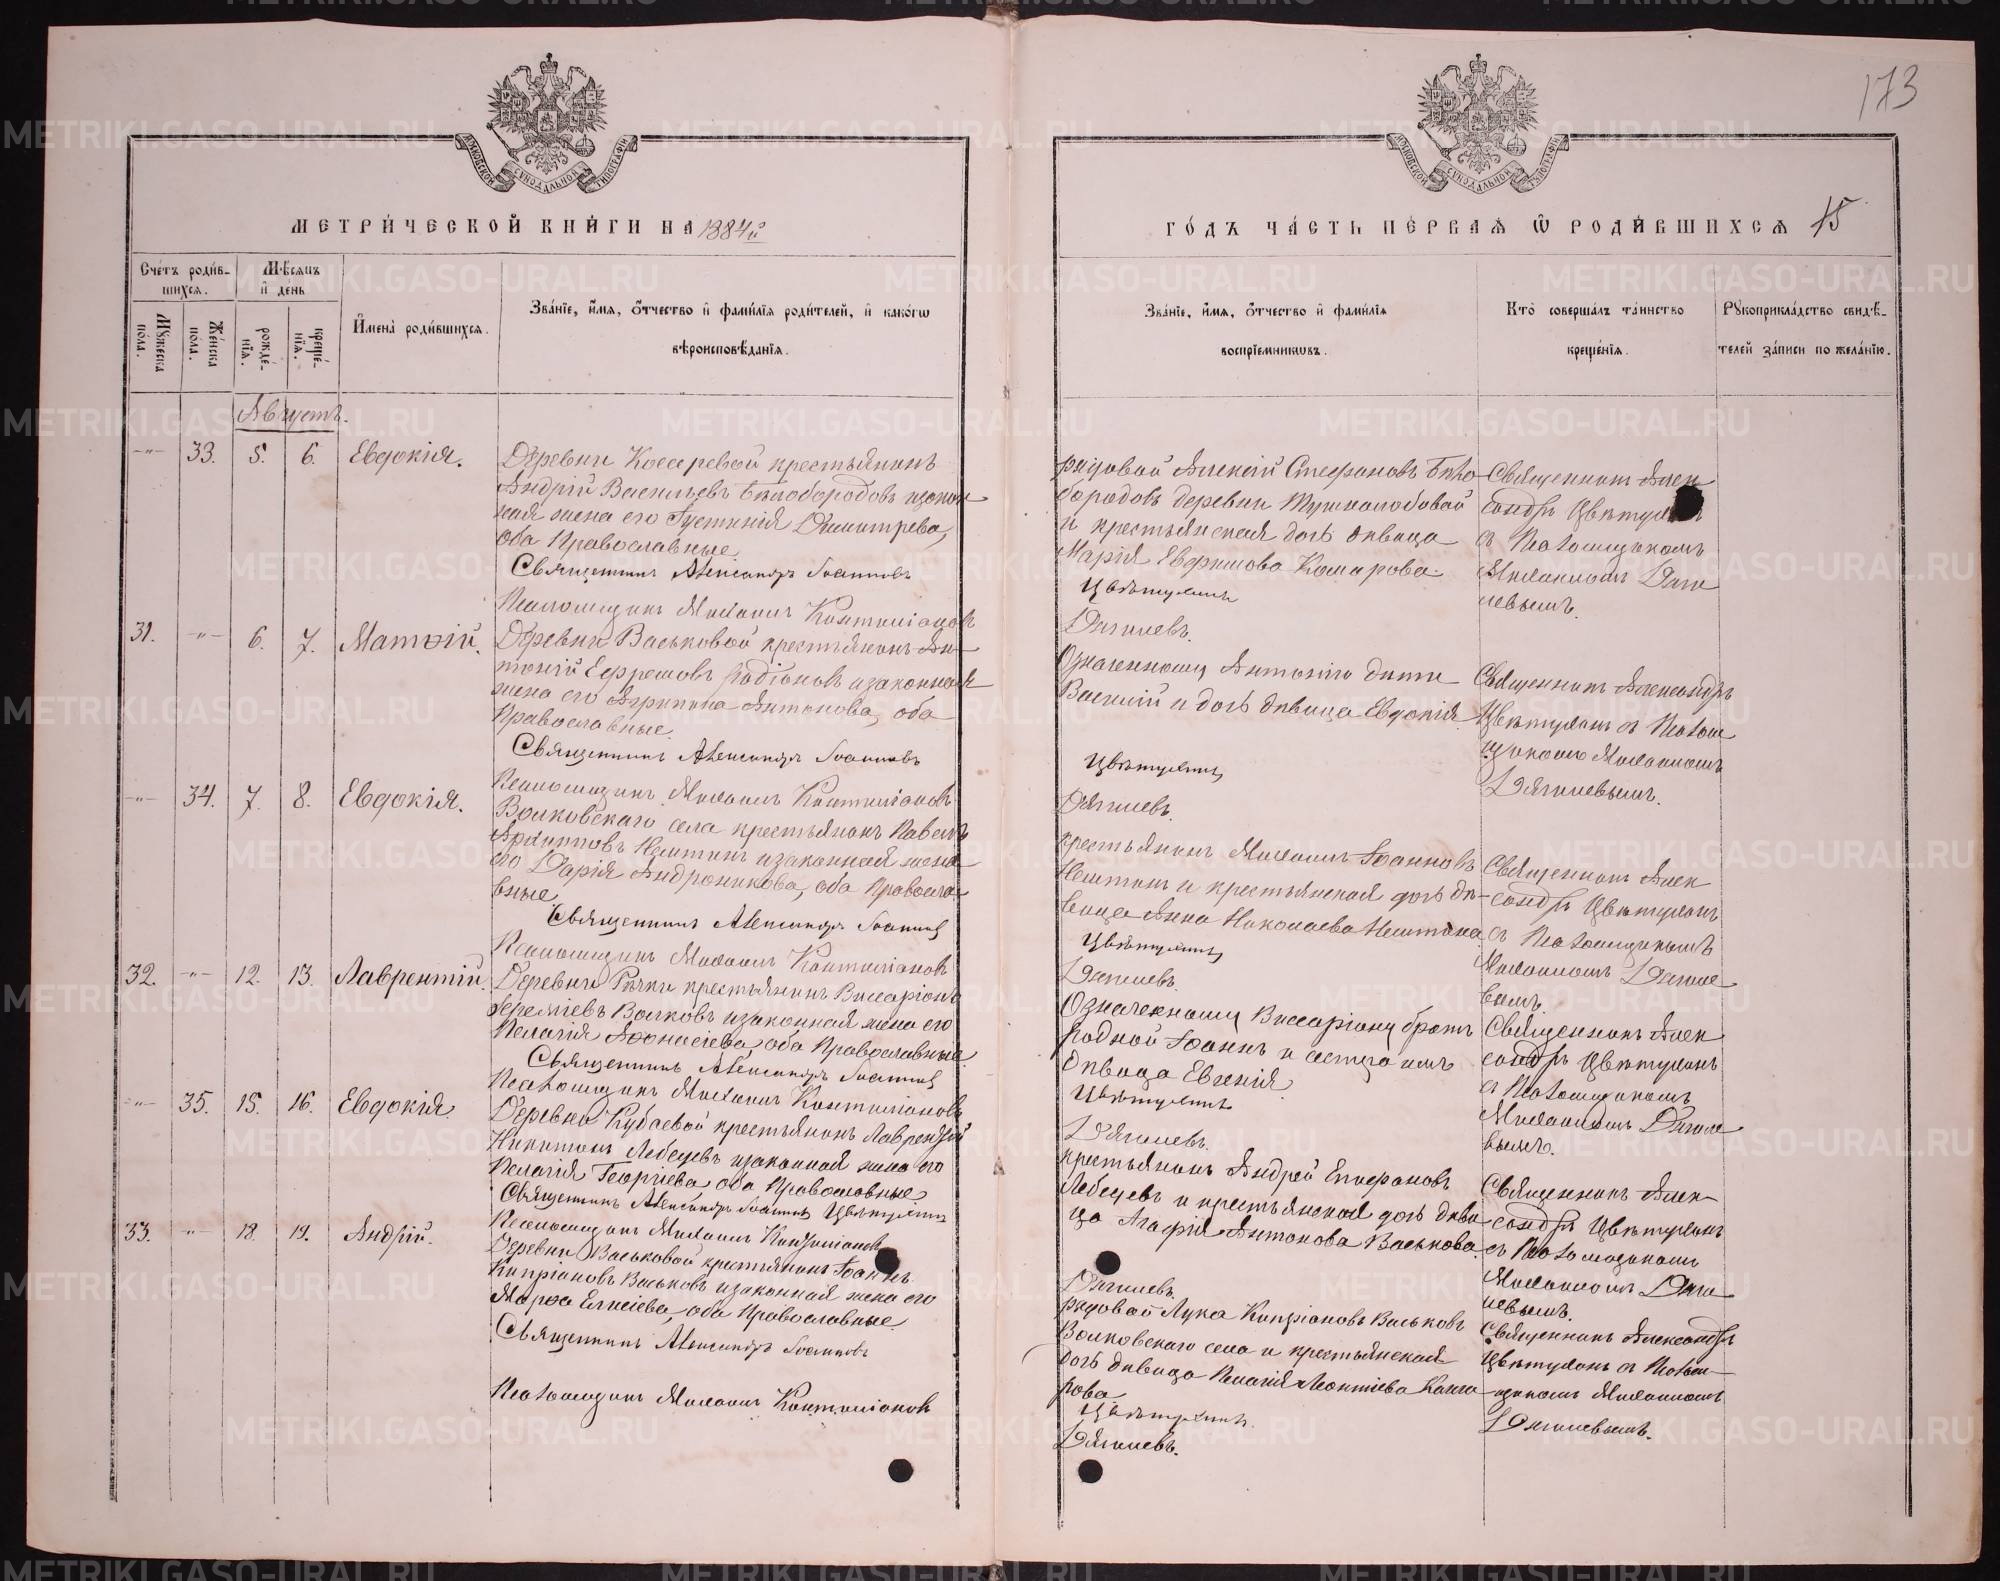 173
МЕТРИЧЕСКОЙ КНИГИ НА 1884й
ГОДЪ ЧАСТЬ ПЕРВАЯ Ѡ РОДИВШИХСЯ 15
МОСКОВСКОЙ СѴНОДАЛЬНОЙ ТИПОГРАФІИ
МОСКОВСКОЙ СѴНОДАЛЬНОЙ ТИПОГРАФІИ
Счетъ родив-
шихся.
Мужеска пола.
Женска пола.
Мѣсяцъ и день
рожде-нія.
креще-нія.
Имена родившихся.
Званіе, имя, отчество и фамилія родителей, и какогѡ
вѣроисповѣданія.
Званіе, имя, отчество и фамилія
воспріемниковъ.
Кто совершалъ таинство
крещенія.
Рукоприкладство свидѣ-
телей записи по желанію.
Августъ.
-"- 33. 5. 6. Евдокія.
Деревни Косаревой крестьянинъ
Андрій Васильевъ Бѣлобородовъ и закон
ная жена его Густинія Димитрева,
оба Православные.
Священникъ Александръ Іоанновъ
Псаломщикъ Михаилъ Контиліановъ
рядовой Алексій Стефановъ Бѣло
бородовъ деревни
и крестьянская дочь дѣвица
Марія Ефимова Комарова.
Цвѣтухинъ
Дягилевъ.
Священникъ Алек
сандръ Цвѣтухинъ
съ Псаломщикомъ
Михаиломъ Дяги
левымъ.
31. -"- 6. 7. Матѳій.
Деревни Васьковой крестьянинъ Ан-
тоній Ефремовъ Родіоновъ и законная
жена его Агрипина Антонова, оба
Православные.
Священникъ Александръ Іоанновъ
Псаломщикъ Михаилъ Контиліановъ
Означенному Антонію дѣти
Василій и дочь дѣвица Евдокія.
Цвѣтухинъ
Дягилевъ.
Священникъ Александръ
Цвѣтухинъ съ Псалом
щикомъ Михаиломъ
Дягилевымъ.
-"- 34. 7. 8. Евдокія.
Волковскаго села крестьянинъ Павелъ
Неитинъ и законная жена
его Дарія Андроникова, оба Правосла-
вные.
Священникъ Александръ Іоанновъ
Псаломщикъ Михаилъ Контиліановъ
крестьянинъ Михаилъ Іоанновъ
Неитинъ и крестьянская дочь дѣ-
вица Анна Николаева Неитина.
Цвѣтухинъ
Дягилевъ.
Священникъ Алек
сандръ Цвѣтухинъ
съ Псаломщикомъ
Михаиломъ Дягиле
вымъ.
32. -"- 12. 13. Лаврентій.
Деревни Рѣчки крестьянинъ Виссаріонъ
Іереміевъ Волковъ и законная жена его
Пелагія Аѳонасіева, оба Православные.
Священникъ Александръ Іоанновъ
Псаломщикъ Михаилъ Контиліановъ
Означенному Виссаріону братъ
родной Іоаннъ и сестра имъ
дѣвица Евгенія.
Цвѣтухинъ
Дягилевъ.
Священникъ Алек
сандръ Цвѣтухинъ
съ Псаломщикомъ
Михаиломъ Дягиле
вымъ.
-"- 35. 15. 16. Евдокія.
Деревни Кубаевой крестьянинъ Лаврентій
Никитинъ Лебедевъ и законная жена его
Пелагія Георгіева, оба Православные.
Священникъ Александръ Іоанновъ Цвѣтухинъ
Псаломщикъ Михаилъ Контиліановъ
крестьянинъ Андрей Епифановъ
Лебедевъ и крестьянская дочь дѣви
ца Агафія Антонова Васькова.
Дягилевъ.
Священникъ Алек-
сандръ Цвѣтухинъ
съ Псаломщикомъ
Михаиломъ Дяги
левымъ.
33. -"- 18. 19. Андрій.
Деревни Васьковой крестьянинъ Іоаннъ
Кипріановъ Васьковъ и законная жена его
Марѳа Елисіева, оба Православные.
Священникъ Александръ Іоанновъ
Псаломщикъ Михаилъ Контиліановъ
рядовой Лука Кипріановъ Васьковъ
Волковскаго села и крестьянская
дочь дѣвица Пелагія Леонтіева
Цвѣтухинъ.
Дягилевъ.
Священникъ Александръ
Цвѣтухинъ съ Псалом-
щикомъ Михаиломъ
Дягилевымъ.
METRIKI.GASO-URAL.RU